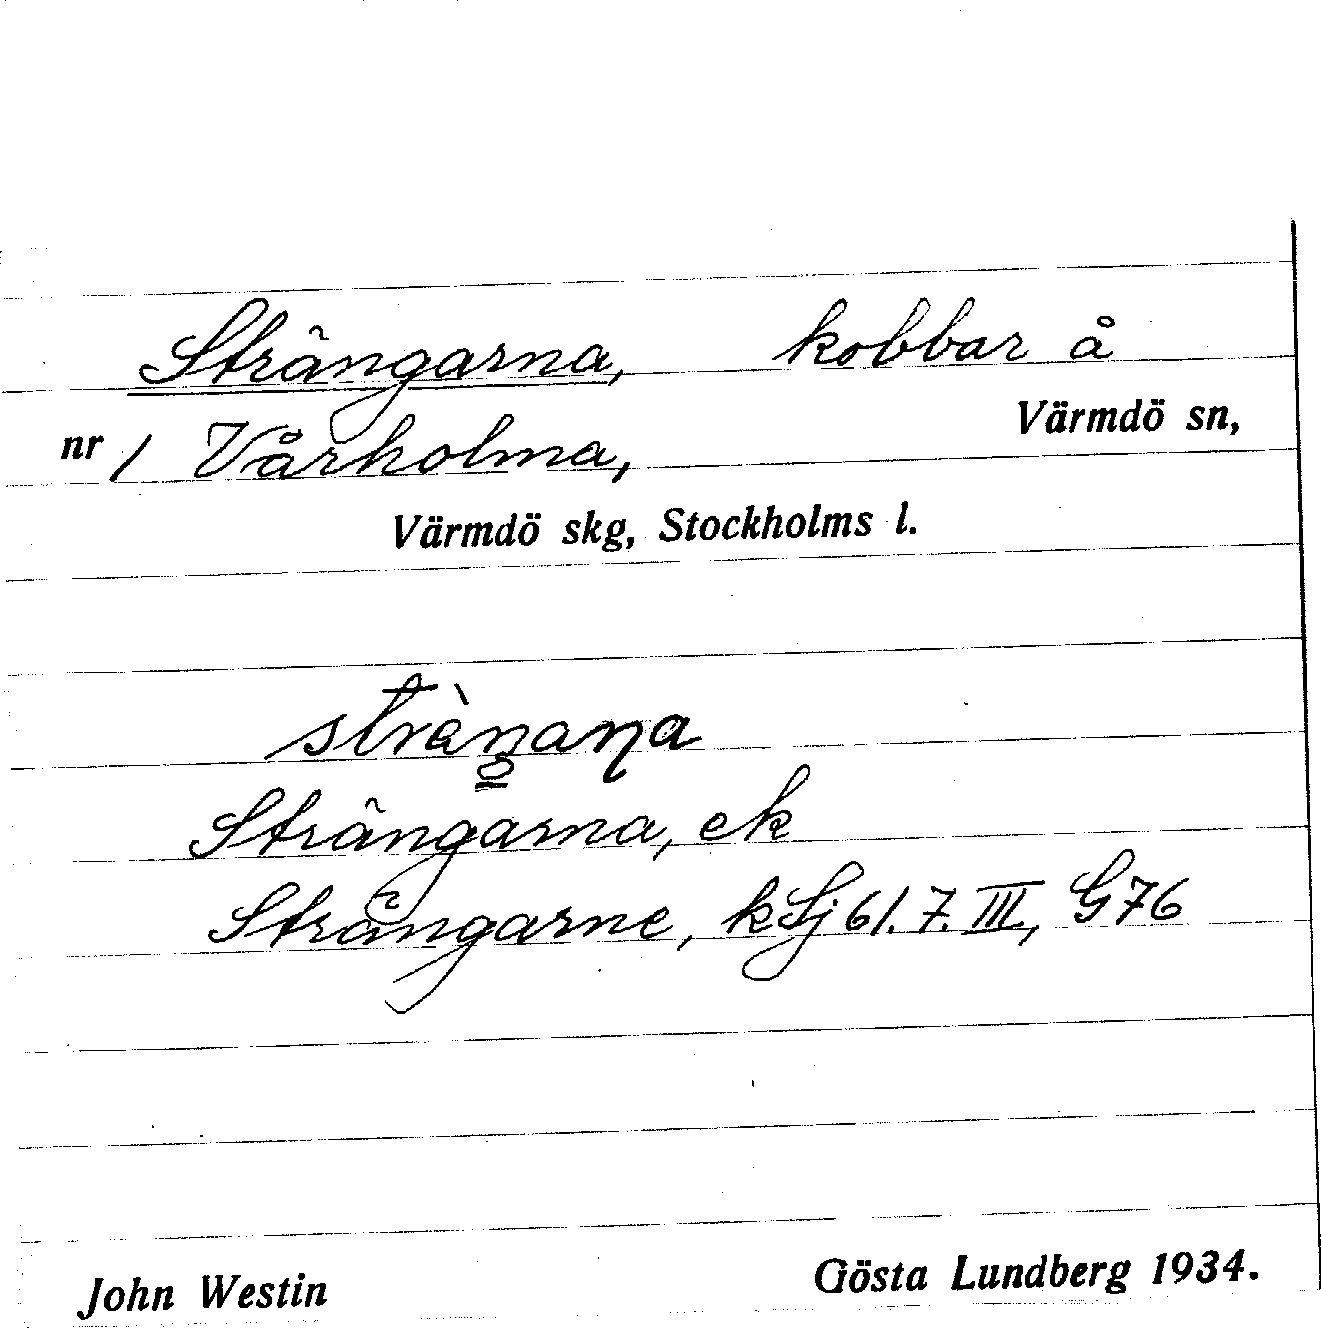 Strängarna, kobbar å
Värmdö sn,
nr 1 Vårholma,
Värmdö skg, Stockholms l.
Strängarna, ek
Strängarne, kSj 61.7.III, G76
John Westin
Gösta Lundberg 1934.